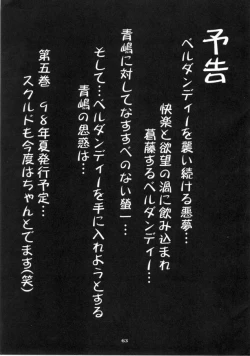 予告
ベルダンディーを襲い続ける悪夢…
快楽と欲望の渦に飲み込まれ
葛藤するベルダンディー…
青嶋に対してなすすべのない螢一…
そして…ベルダンディーを手に入れようとする
青嶋の思惑は…
第五巻 98年夏発行予定…
スクルドも今度はちゃんとでます(笑)
63